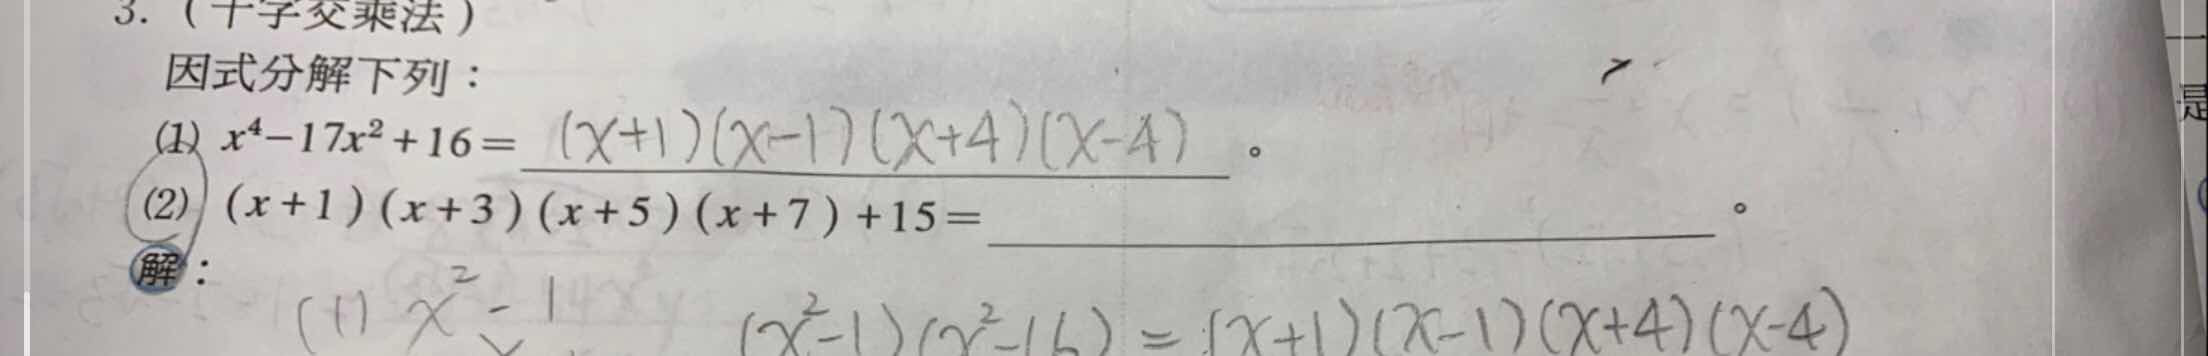 3. (十字交乘法)
因式分解下列:
(1) x⁴-17x²+16= (x+1)(x-1)(x+4)(x-4) 。
(2) (x+1)(x+3)(x+5)(x+7)+15= 。
解:
(1) x² - 1 (x²-1)(x²-16) = (x+1)(x-1)(x+4)(x-4)
是